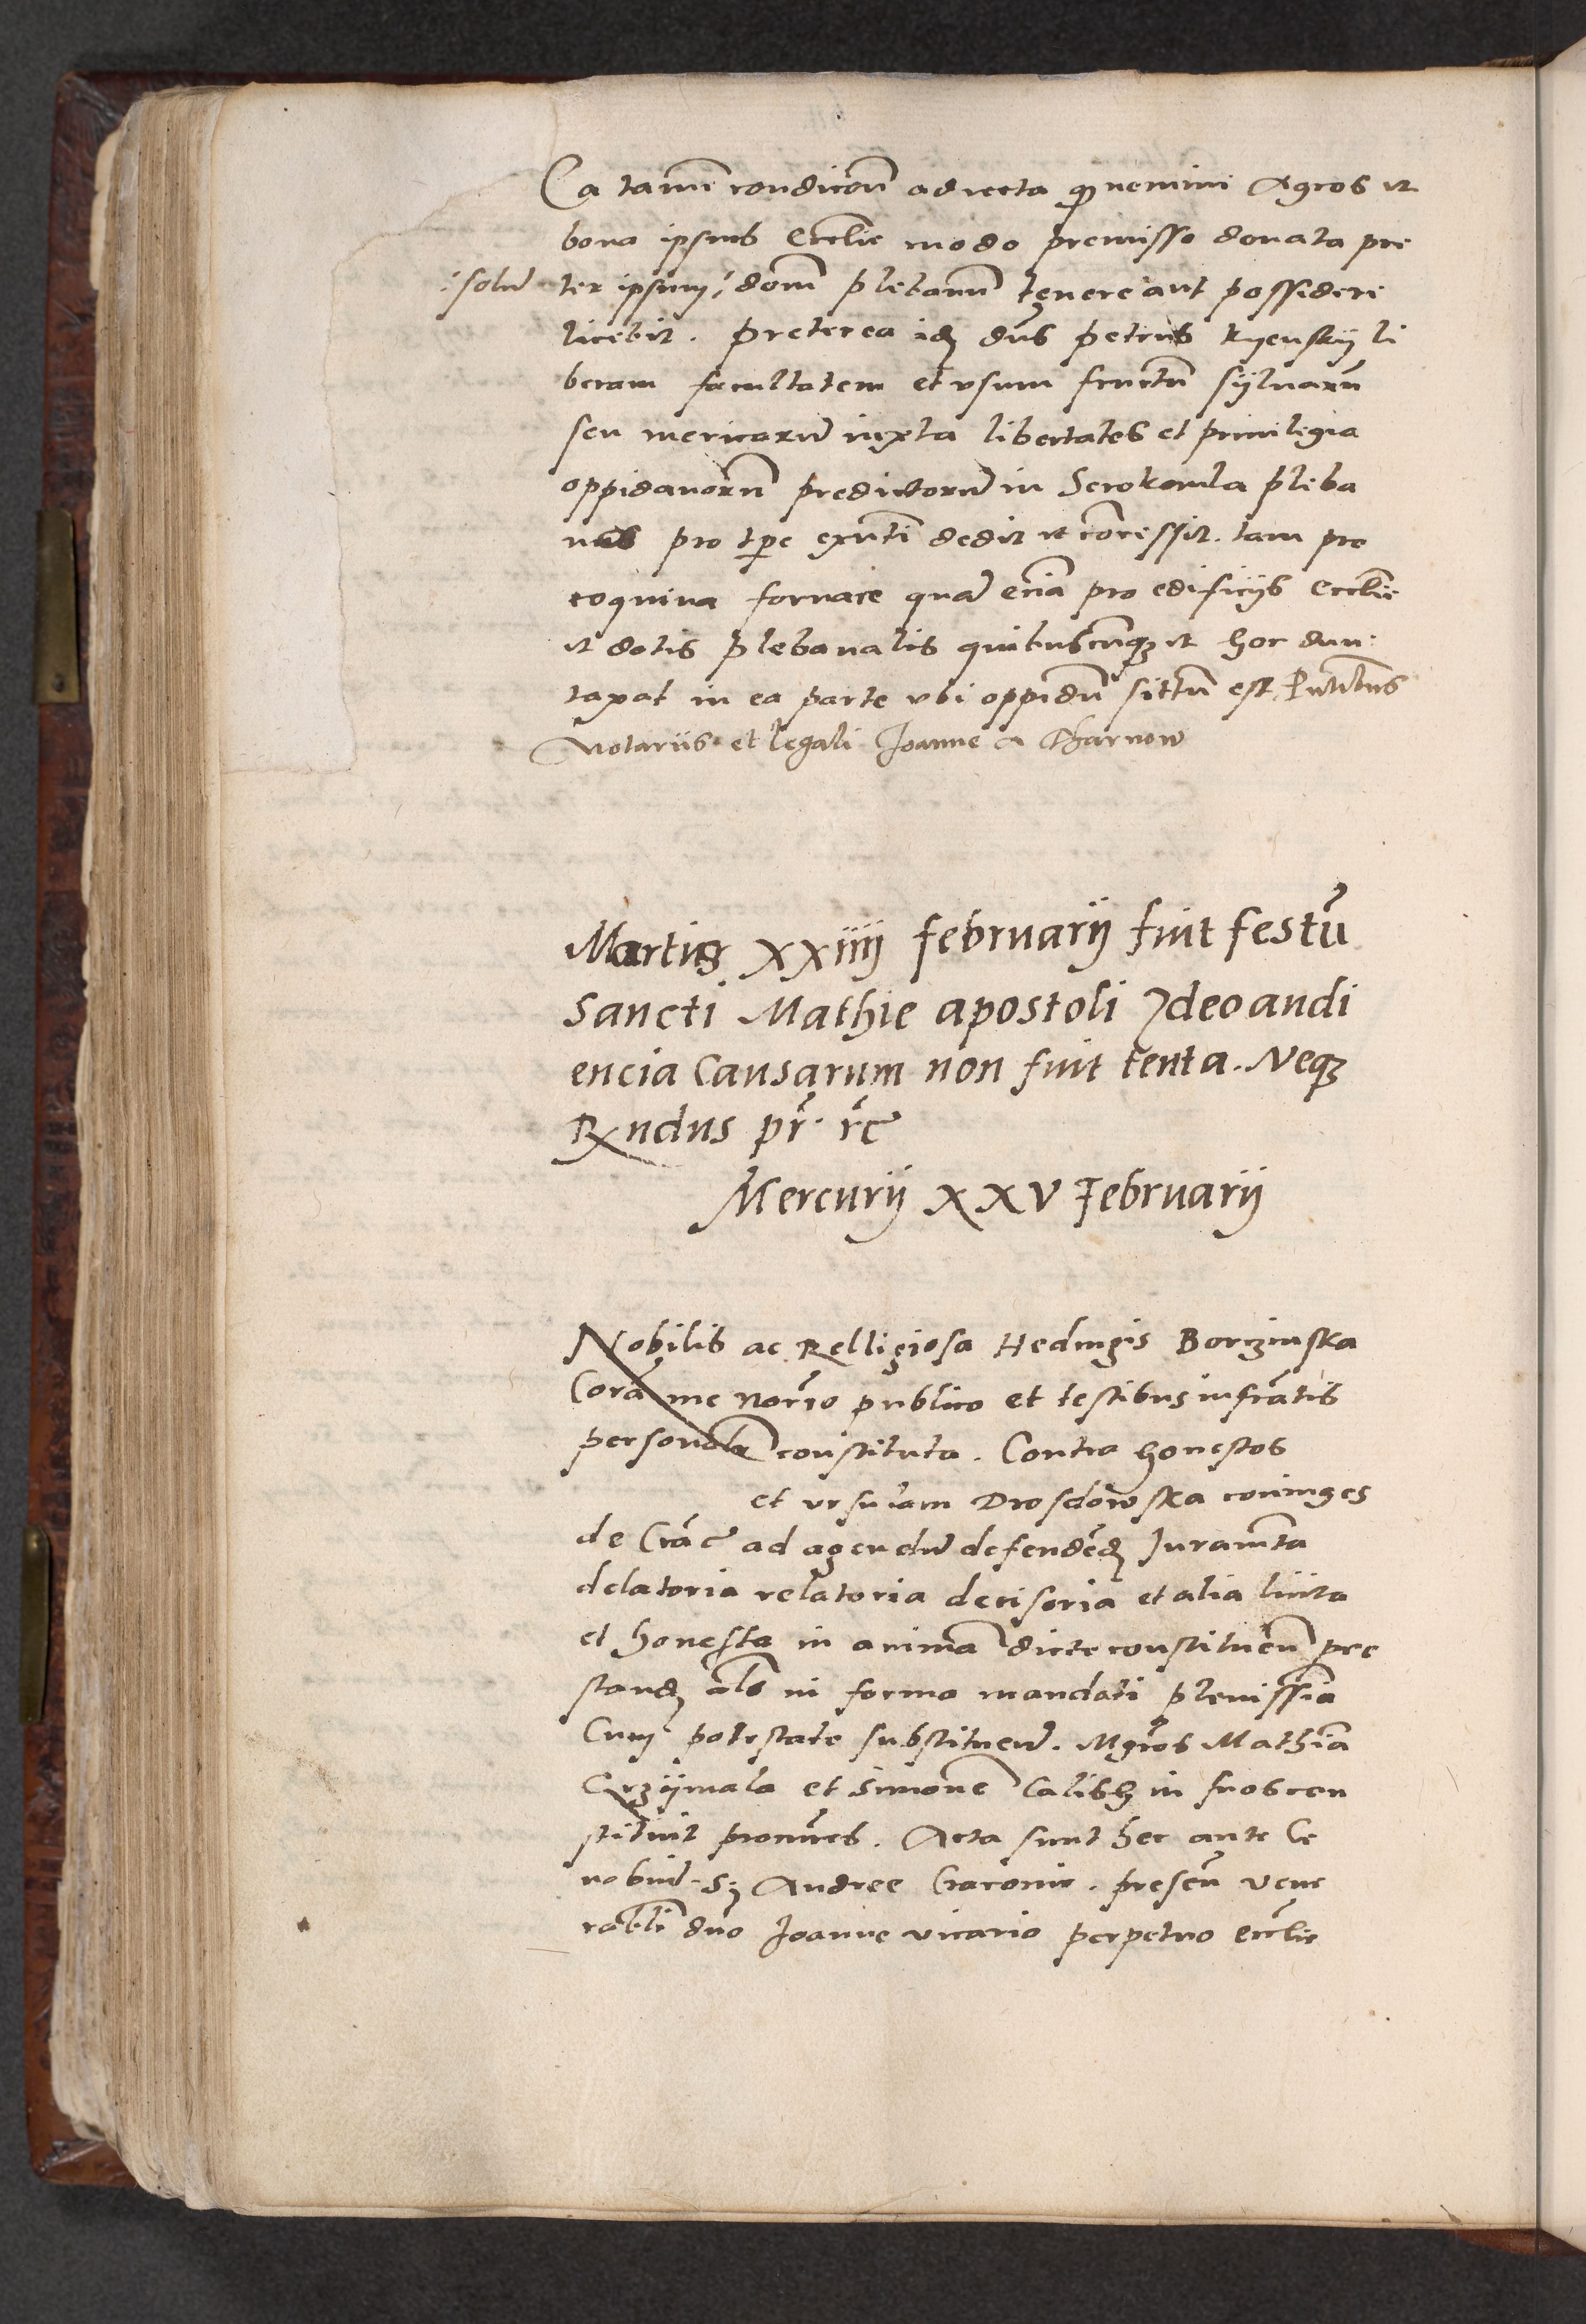 Ea tame᷑ condico᷑e adiecta q nemini Agros et
bona ipsius Eccl᷑ie modo premisso donata pre
:solu᷑
ter ipsum :/ dom᷑ plebanu᷑ tenere aut possidere
licebit. Preterea ide᷑ dn᷑s petrus Kyenskÿ li
beram facultatem et vsum fructu᷑ sÿluaru᷑
seu mericaru᷑ iuxta libertates et priuilegia
oppidanoru᷑ predictoru᷑ in Serokomla pleba
nis pro tp᷑e exn᷑tib᷑ dedit et co᷑cessit. tam pro
coquina fornace qua᷑ ecia᷑ pro edificijs Eccl᷑ie
et dotis plebanalis quibuscu᷑q et hoc dun:
taxat in ea parte vbi oppidu᷑ situ᷑ est. Pn᷑tibus
Notariis et legali Joanne a Tharnow
Martis xxiiij februarij fuit festu᷑
Sancti Mathie apostoli Ideo audi
encia Causarum non fuit tenta. Neq
Rx̄ndus pr᷑. rc᷑
Mercurij xxv Februarij
Nobilis ac Relligiosa Heduigis Borziuska
Cora᷑ me Nor᷑io publico et testibus infra᷑tis
personal᷑r constituta. Contra honestos
et vrsulam Drosdowska coniuges
de Cra᷑c ad agendu᷑ defendẽd Juram᷑ta
delatoria relatoria decisoria et alia licita
et honesta in anima᷑ dicte constituen᷑ pre
stand al᷑s in forma mandati plenissi᷑a
Cum potestate substituend᷑. Mgr᷑os Mathia᷑
Crzÿmala et Simone᷑ Calish in suos con
stituit procur᷑es. Acta sunt hec ante Ce
nobiu᷑ S. Andree Cracouie. presen᷑ vene
rabili᷑ dn᷑o Joanne vicario perpetuo eccl᷑ie